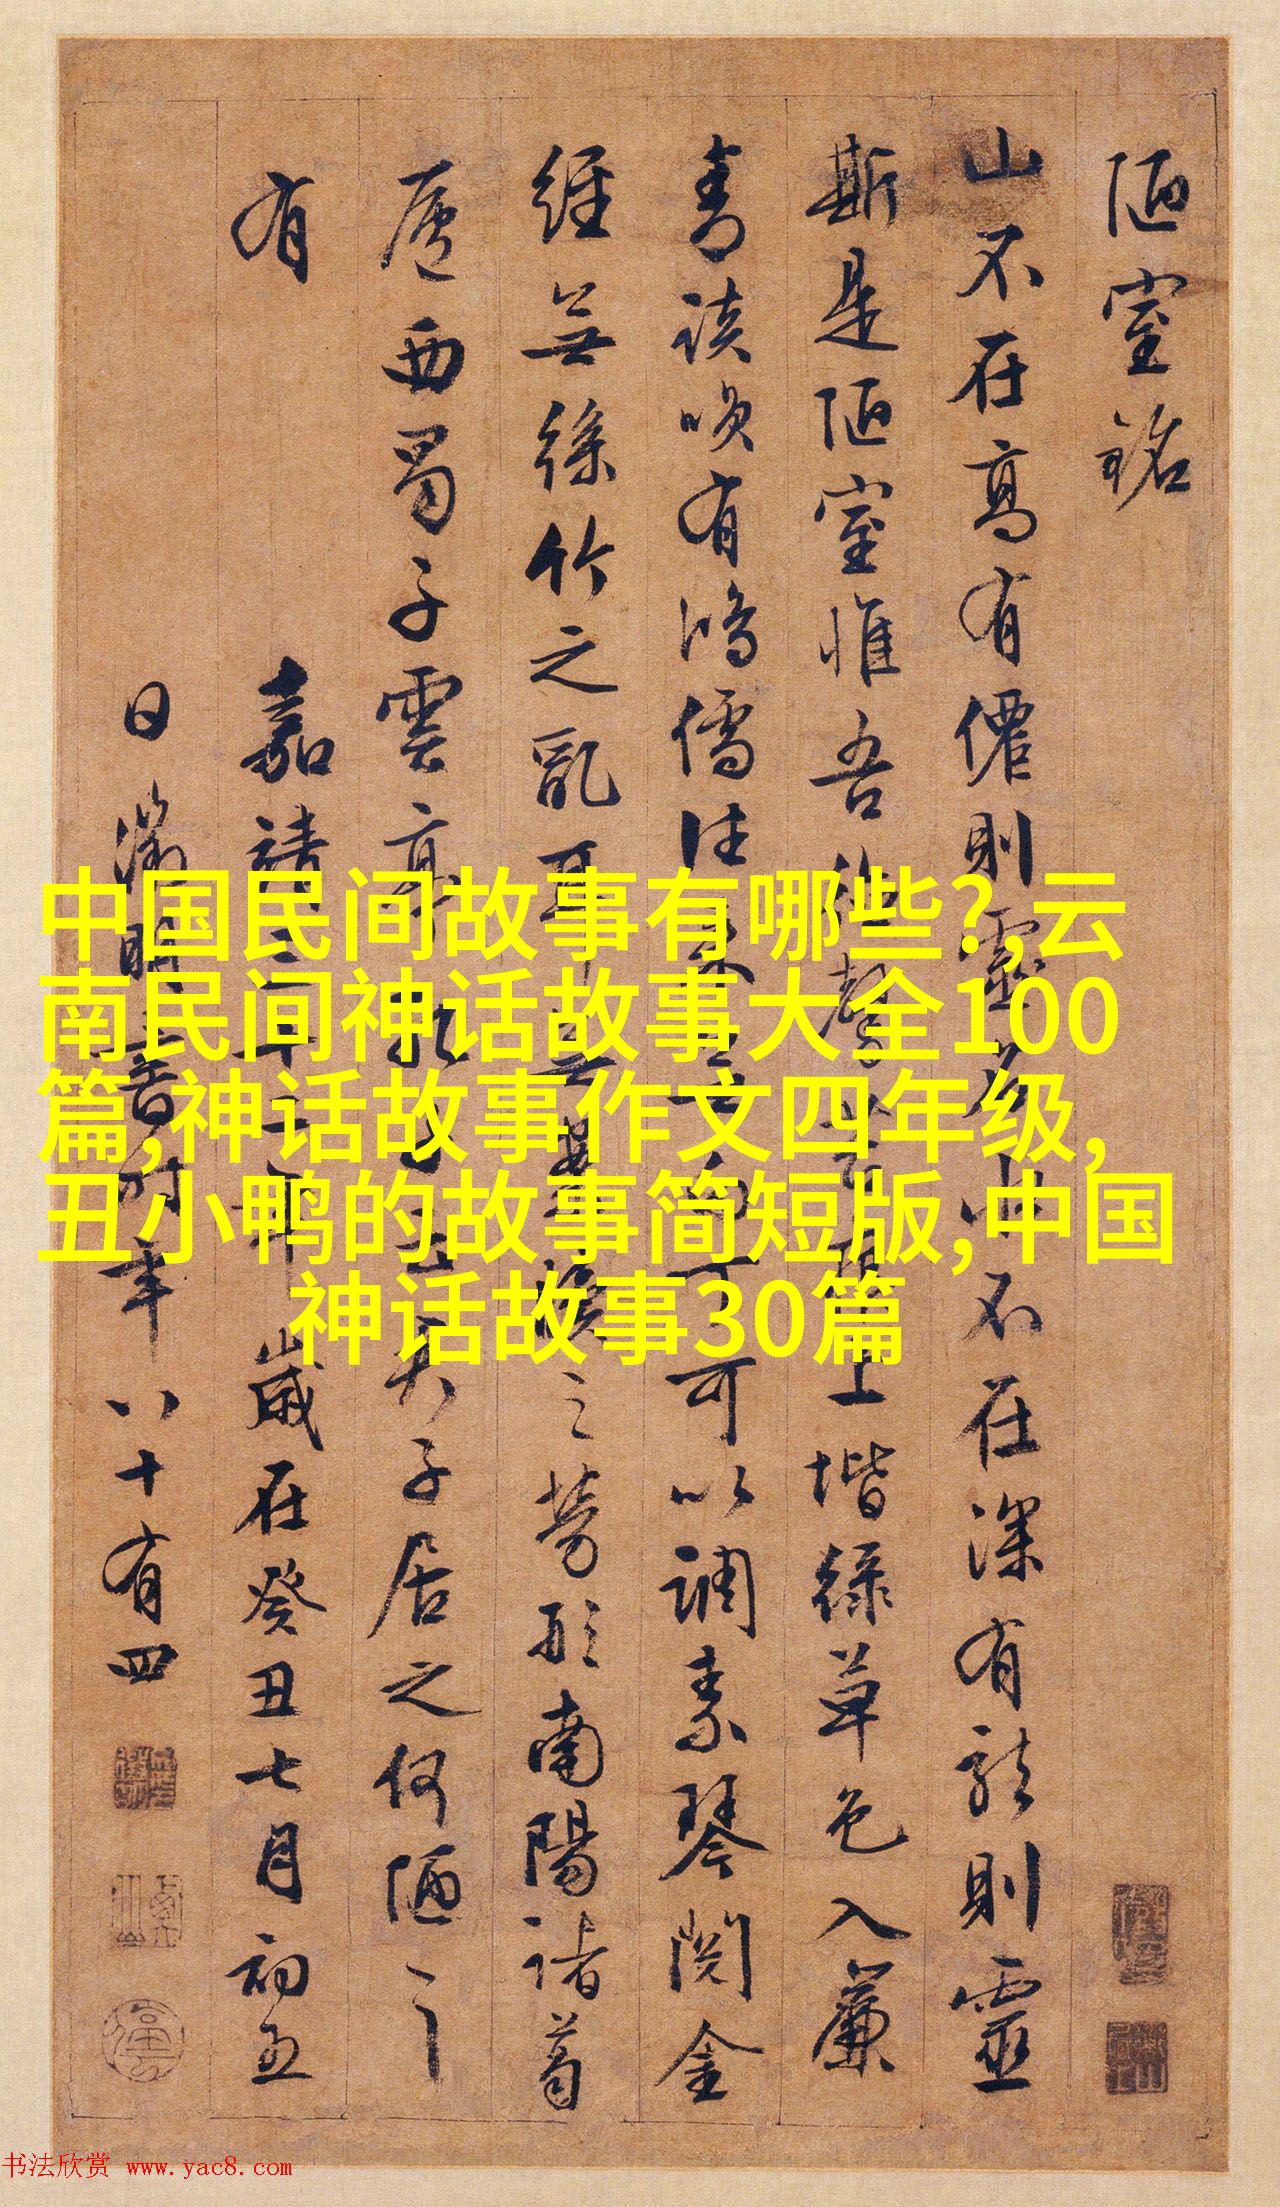 陋室銘
山不在高有僊則水不在深有龍則靈
斯是陋室惟吾德馨苔痕上堦綠草色入簾
青談咲有鴻儒往來無白丁可以調素琴閱金
經無絲竹之亂耳無案牘之勞形南陽諸葛
廬西蜀子雲亭孔子居之何陋之
有
嘉靖三十二年歲在癸丑七月初五
日徵明書時年八十有四
中国民间故事有哪些?,云
南民间神话故事大全100
篇,神话故事作文四年级,
丑小鸭的故事简短版,中国
神话故事30篇
书法欣赏 www.yac8.com